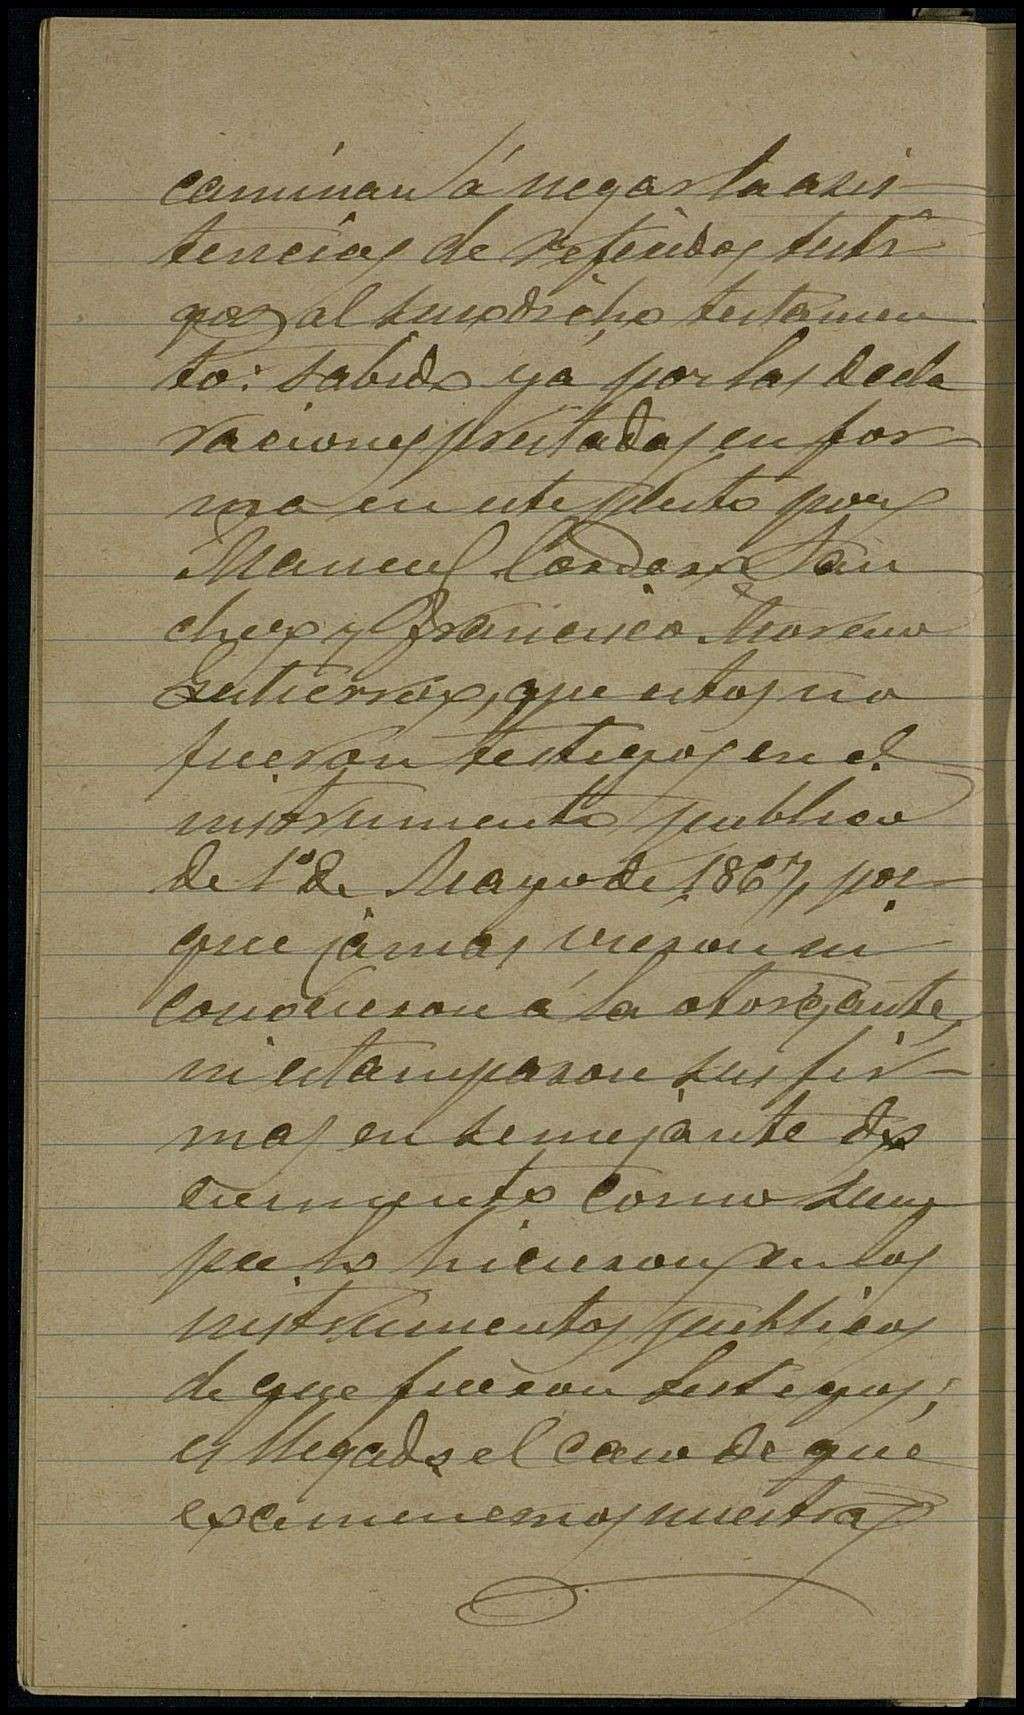 caminan á negar la asis-
tencias de referidos testi-
gos al susodicho testamen
to: sabido ya por las decla
raciones prestadas en for-
ma en este pleito por
Manuel Cordero San
chez y Francisco Moreno
Gutierrez, que estos no
fueron testigos en el
instrumento publico
de 1º de Mayo de 1867, por-
que jamas vieron ni
conocieron á la otorgante,
ni estamparon sus fir-
mas en semejante do
cumento como siem
pre lo hicieron en los
instrumentos publicos
de que fueron testigos;
es llegado el caso de que
examinemos nuestra